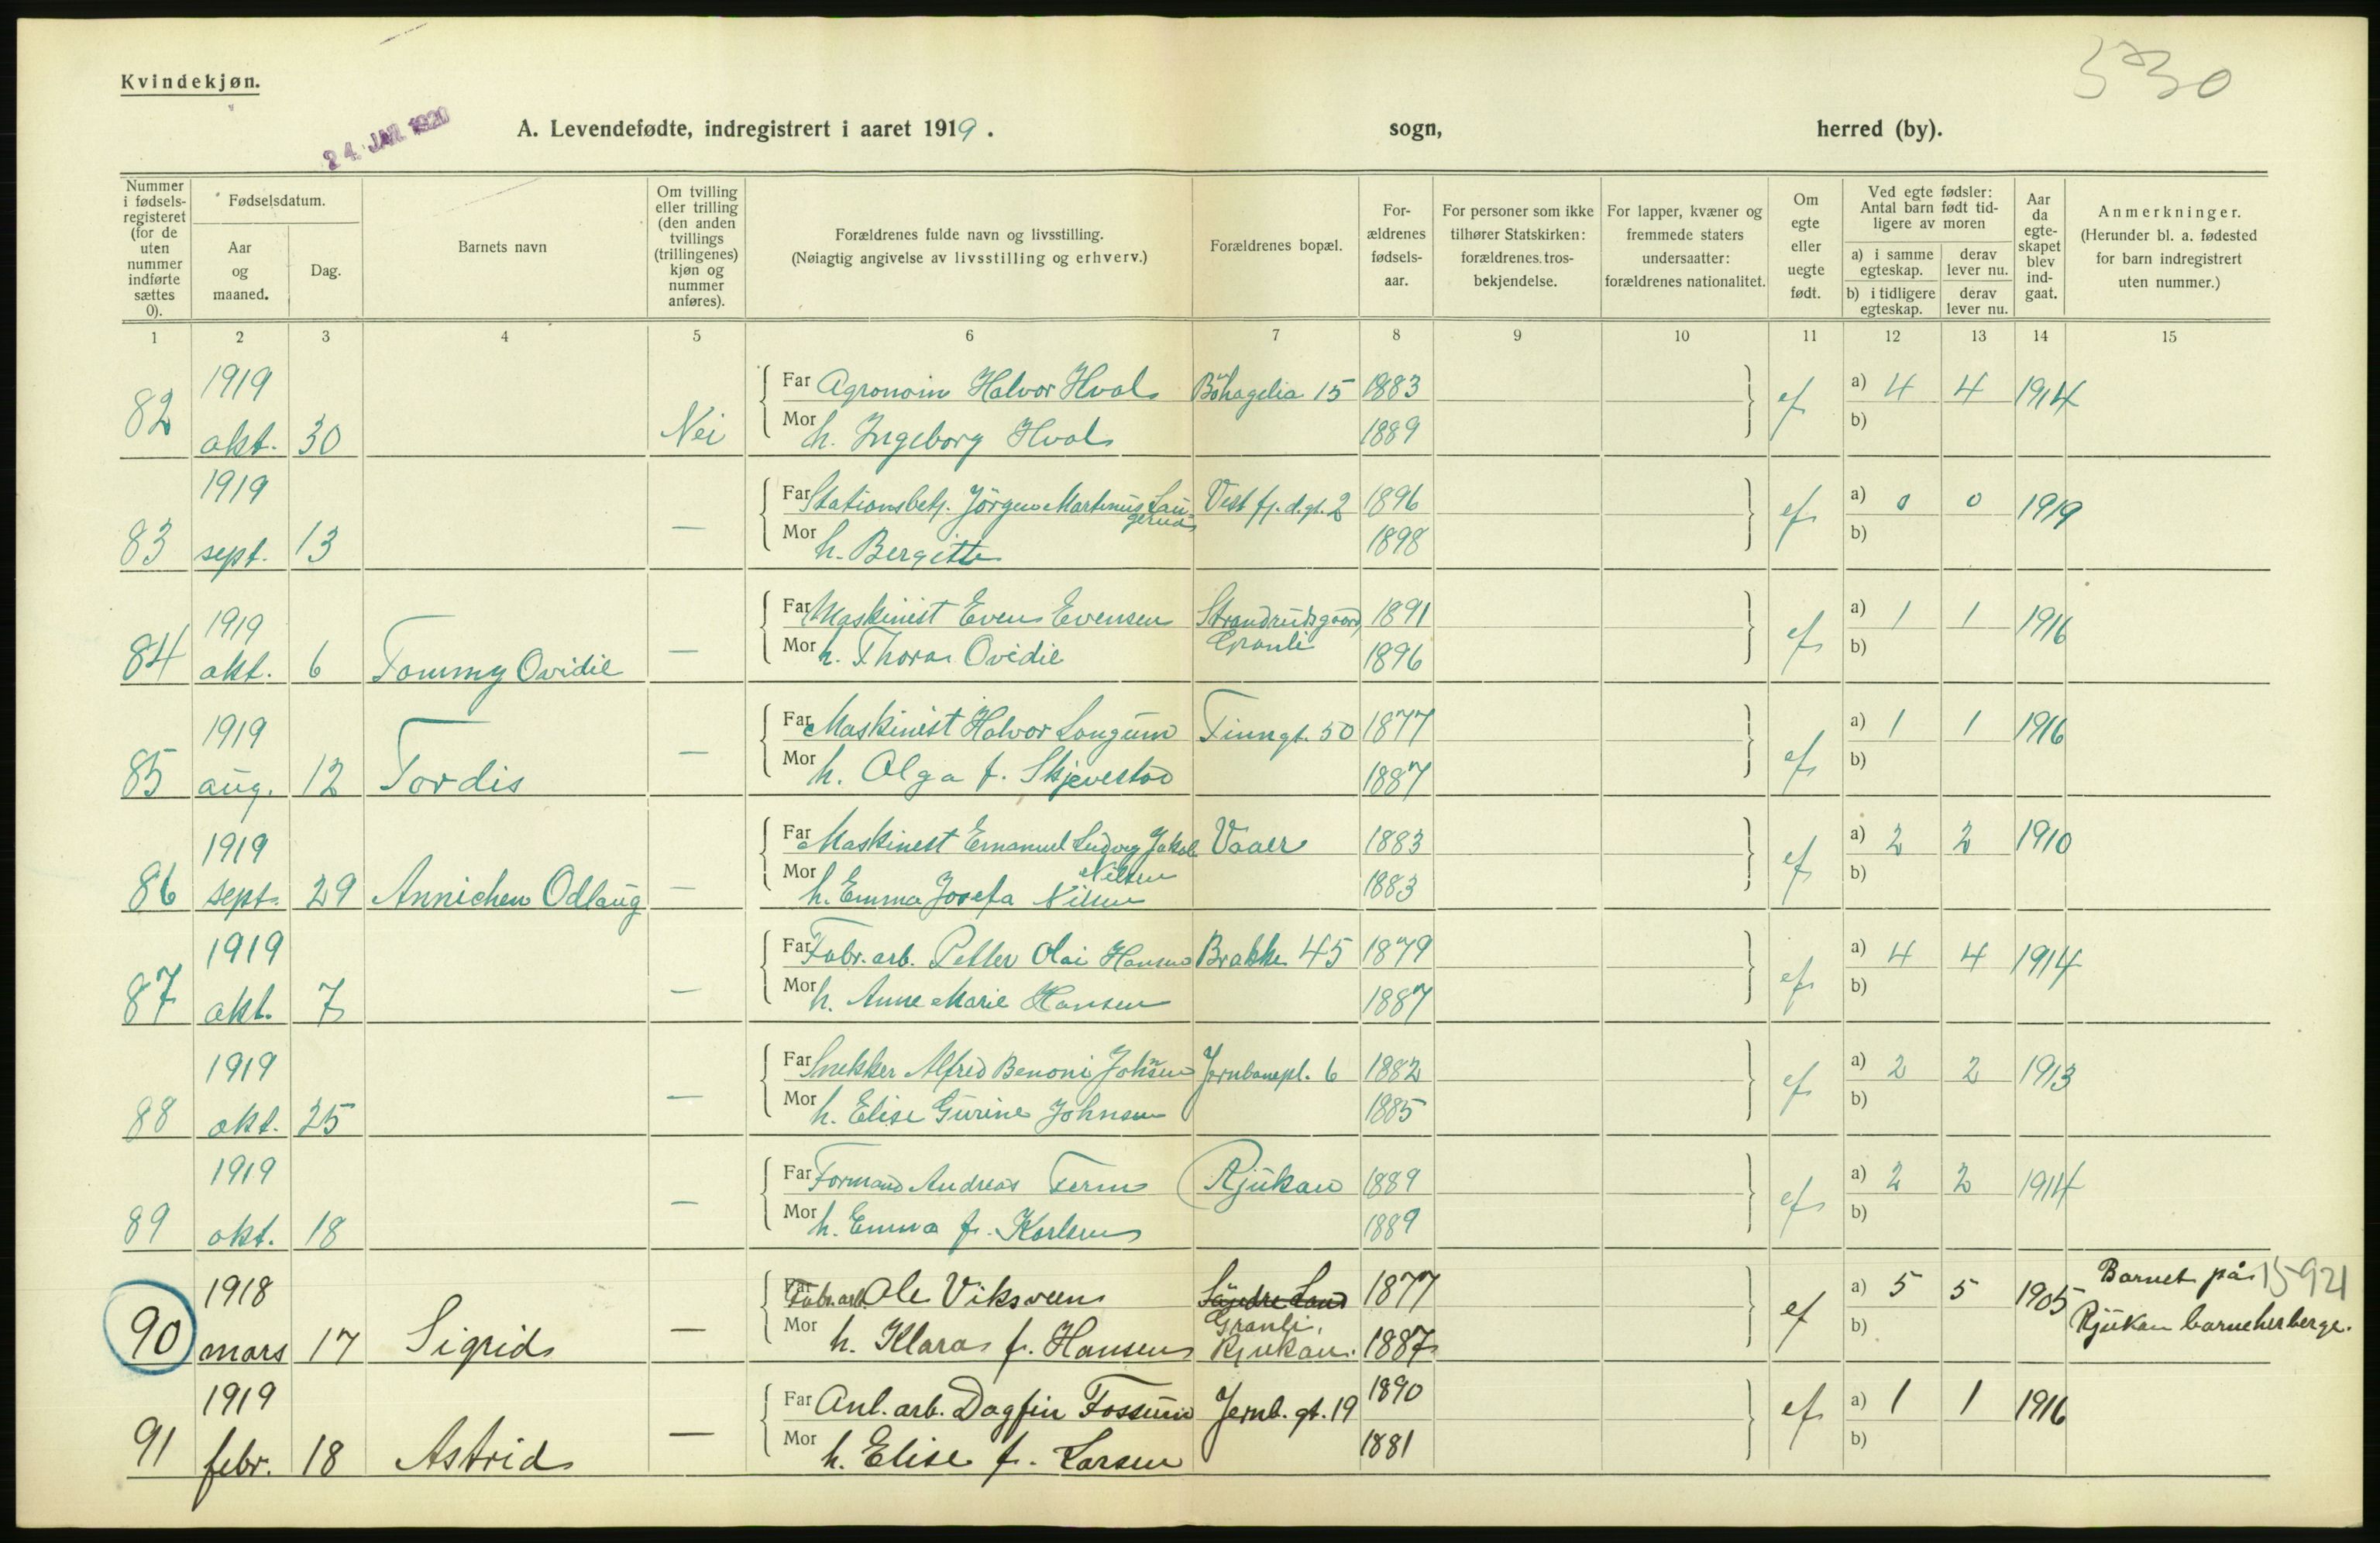 Kvindekjøn.
530
24. JAN. 1920
A. Levendefødte, indregistrert i aaret 1919. sogn, herred (by).
Nummer i fødsels-registeret (for de uten nummer indførte sættes 0).
Fødselsdatum.
Aar og maaned.
Dag.
Barnets navn
Om tvilling eller trilling (den anden tvillings (trillingenes) kjøn og nummer anføres).
Forældrenes fulde navn og livsstilling.
(Nøiagtig angivelse av livsstilling og erhverv.)
Forældrenes bopæl.
For-ældrenes fødsels-aar.
For personer som ikke tilhører Statskirken: forældrenes tros-bekjendelse.
For lapper, kvæner og fremmede staters undersaatter: forældrenes nationalitet.
Om egte eller uegte født.
Ved egte fødsler: Antal barn født tid-ligere av moren
a) i samme egteskap. derav lever nu.
b) i tidligere egteskap. derav lever nu.
Aar da egte-skapet blev ind-gaat.
Anmerkninger.
(Herunder bl. a. fødested for barn indregistrert uten nummer.)
1 2 3 4 5 6 7 8 9 10 11 12 13 14 15
1919 Far Agronom Halvor Hvals Böhagelia 15 1883 a) 4 4 1914
82 okt. 30 Nei Mor h. Ingeborg Hvals 1889 ef b)
1919 Far Stationsbetj. Jörgen Martinus Lau-gerud Vestfj.d.gt. 2 1896 a) 0 0 1919
83 sept. 13 — Mor h. Bergitte 1898 ef b)
1919 Far Maskinist Even Evensen Strandrudsgaard, 1891 a) 1 1 1916
84 okt. 6 Tommy Ovidie — Mor h. Thora Ovidie Granli 1896 ef b)
1919 Far Maskinist Halvor Langum Tinngt. 50 1877 a) 1 1 1916
85 aug. 12 Tordis — Mor h. Olga f. Skjevestad 1887 ef b)
1919 Far Maskinist Emanuel Ludvig Jakob Nilsen Vaaer 1883 a) 2 2 1910
86 sept. 29 Annichen Odlaug — Mor h. Emma Josefa Nilsen 1883 ef b)
1919 Far Fabr. arb. Petter Olai Hansen Brakke 45 1879 a) 4 4 1914
87 okt. 7 — Mor h. Anne Marie Hansen 1887 ef b)
1919 Far Snekker Alfred Benoni Johnsen Jernbanepl. 6 1882 a) 2 2 1913
88 okt. 25 — Mor h. Elise Gurine Johnsen 1885 ef b)
1919 Far Formand Andreas Ferm Rjukan 1889 a) 2 2 1914
89 okt. 18 — Mor h. Emma f. Karlsen 1889 ef b)
1918 Far Fabr. arb. Ole Viksveen Søndre Land 1877 a) 5 5 1905 Barnet på 15-921
90 mars 17 Sigrid — Mor h. Klara f. Hansen Granli, Rjukan. 1887 ef b) Rjukan barneherberge.
1919 Far Anl. arb. Dagfin Fossum Jernb. gt. 19 1890 a) 1 1 1916
91 febr. 18 Astrid — Mor h. Elise f. Larsen 1881 ef b)